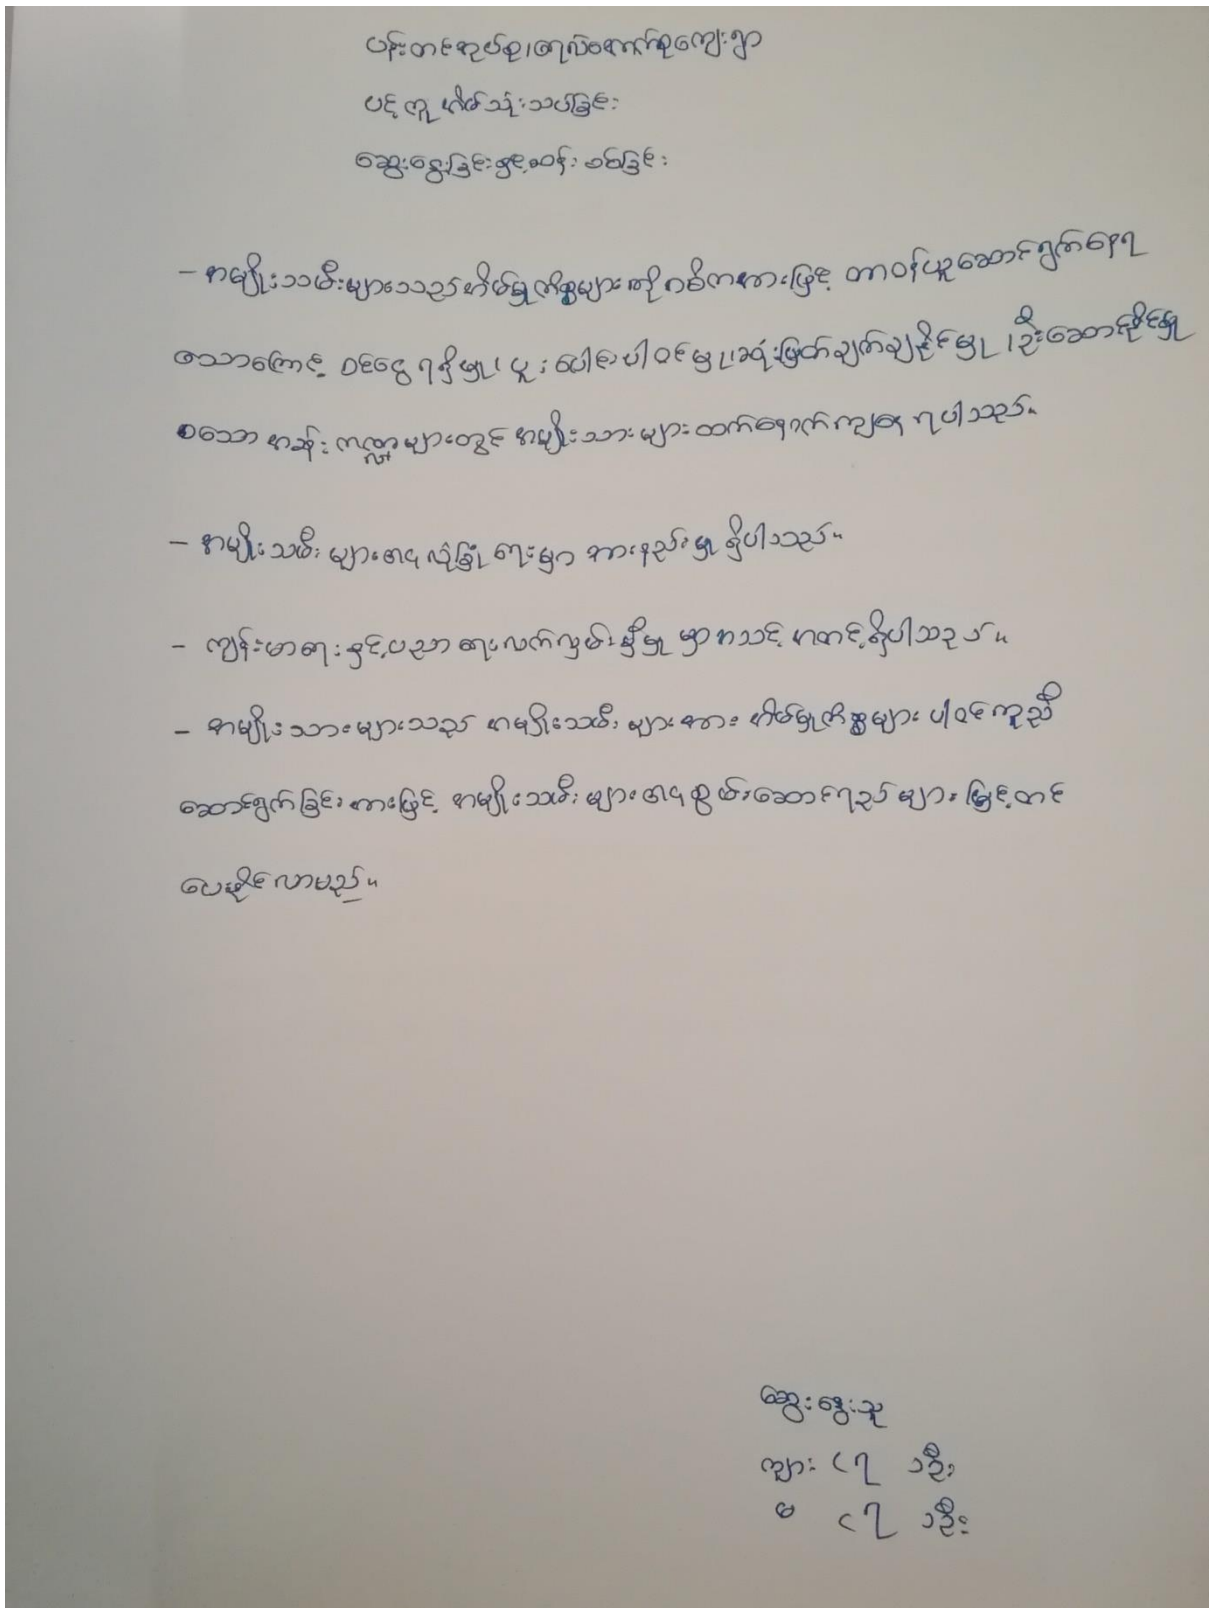 ပန်းတင်အုပ်စု၊ ရေလဲအောက်စုကျေးရွာ
ပင့်ကူအိမ်သုံးသပ်ခြင်း
ဆွေးနွေးခြင်းနှင့်ဆန်းစစ်ခြင်း
- အမျိုးသမီးများသည် အိမ်မှုကိစ္စများကို အဓိကအားဖြင့် တာဝန်ယူဆောင်ရွက်နေရ
သောကြောင့် ဝင်ငွေရရှိမှု၊ ပူးပေါင်းပါဝင်မှု၊ ဆုံးဖြတ်ချက်ချနိုင်မှု၊ ဦးဆောင်နိုင်မှု
စသော အခန်းကဏ္ဍများတွင် အမျိုးသားများထက်နောက်ကျနေရပါသည်။
- အမျိုးသမီးများ၏ လုံခြုံရေးမှာ အားနည်းမှုရှိပါသည်။
- ကျန်းမာရေးနှင့်ပညာရေးလက်လှမ်းမှီမှုမှာ အသင့်အတင့်ရှိပါသည်။
- အမျိုးသားများသည် အမျိုးသမီးများအား အိမ်မှုကိစ္စများ ပါဝင်ကူညီ
ဆောင်ရွက်ခြင်းအားဖြင့် အမျိုးသမီးများ၏ စွမ်းဆောင်ရည်များ မြှင့်တင်
ပေးနိုင်လာမည်။
ဆွေးနွေးသူ
ကျား ၎ရ ဦး
မ ၎ရ ဦး